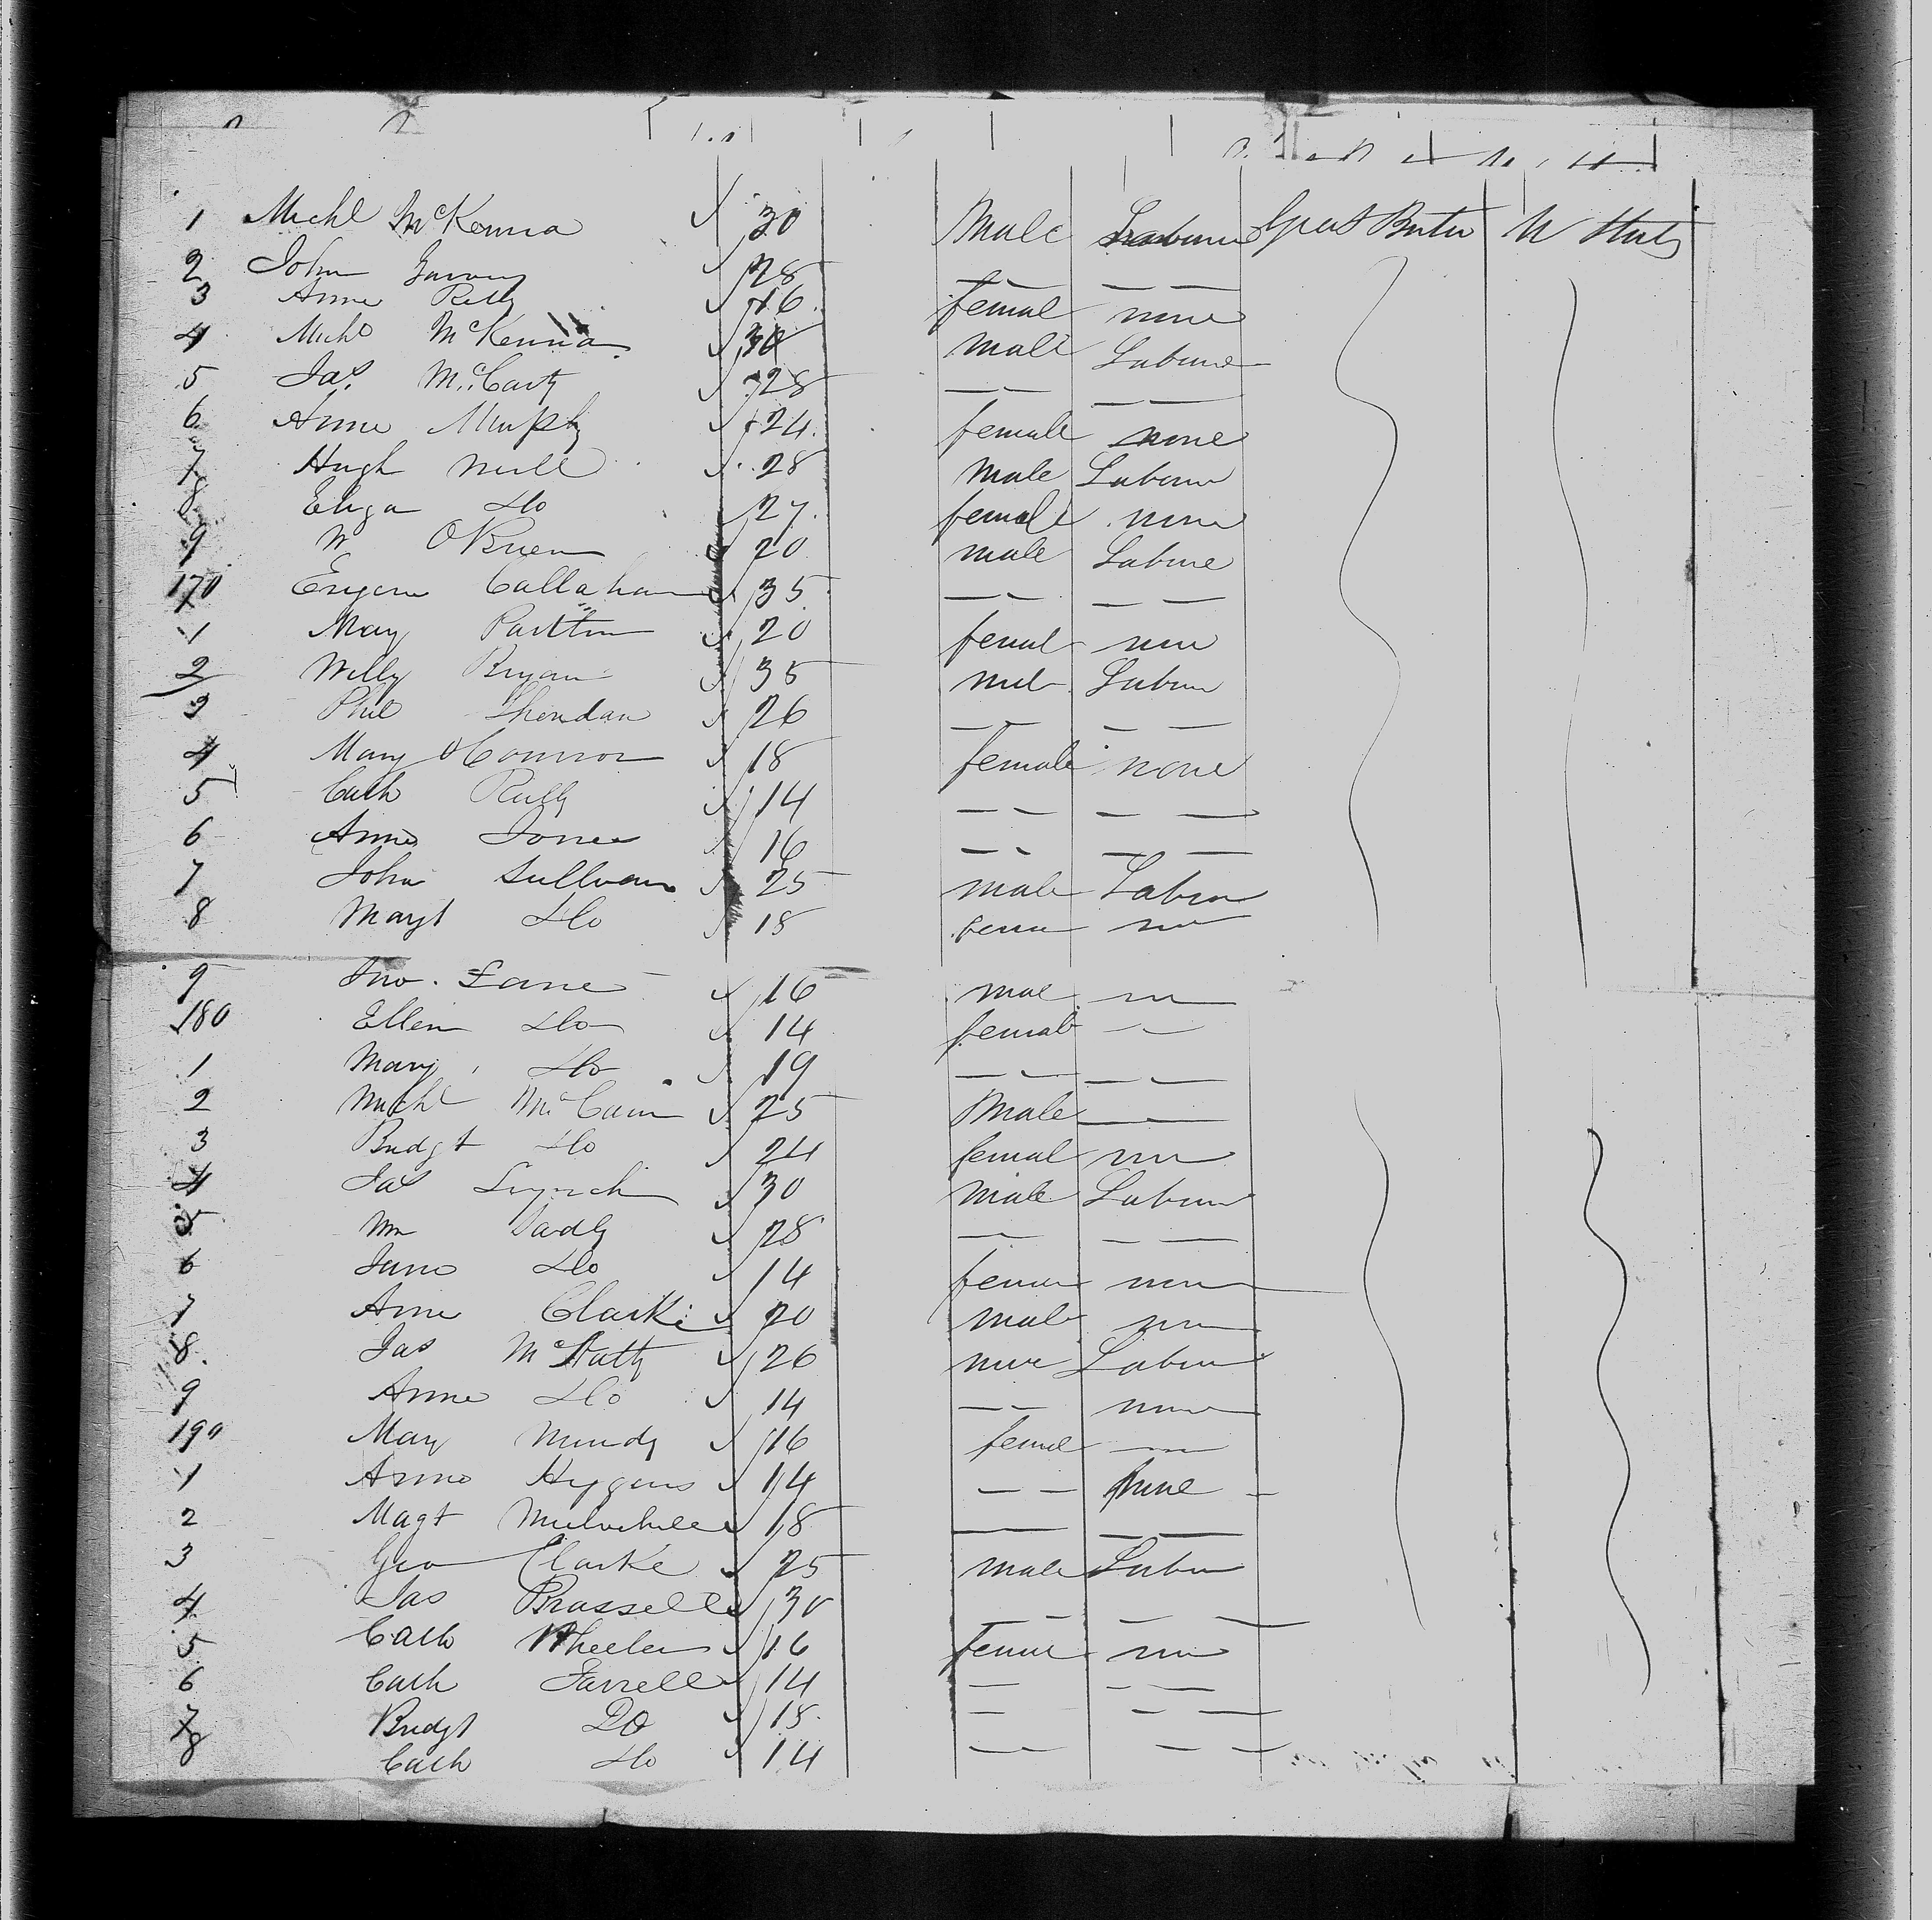 1 Michl McKenna 30 Male Labourer Great Britn U States
2 John Garvey 28 — — — —
3 Anne Reilly 16 femal none
4 Michl McKenna 30 Male Labourer
5 Jas. McCarty 28 — — — —
6 Anne Murphy 24 female none
7 Hugh Neill 28 Male Labourer
8 Eliza Do 27 female none
9 Wm O'Brien 20 male Labourer
170 Eugene Callahan 35 — — — —
1 Mary 20 femal none
2 Willy Bryan 35 male Labour
3 Phil Sheridan 26 — — — —
4 Mary O'Connor 18 female none
5 Cath Reilly 14 — — — —
6 Anne Jones 16 — — — —
7 John Sullivan 25 male Labour
8 Margt Do 18 female none
9 Jno. Lane 16 male none
180 Ellen Do 14 female — —
1 Mary Do 19 — — — —
2 Michl McCann 25 Male — —
3 Bridgt Do 24 femal none
4 Jas Lynch 30 male Labour
5 Wm 28 — — — —
6 Jane Do 14 female none
7 Anne Clarke 20 male none
8. Jas 26 Labour
9 Anne Do 14 — — none
190 Mary 16 femal —
1 Anne Higgins 14 — — none —
2 Magt 18 — — —
3 Geo Clarke 25 male Labour
4 Jas Brassell 30 — — — —
5 Cath Wheeler 16 femal none
6 Cath Farrell 14 — — —
7 Bridgt Do 18 — — —
8 Cath Do 14 — — —